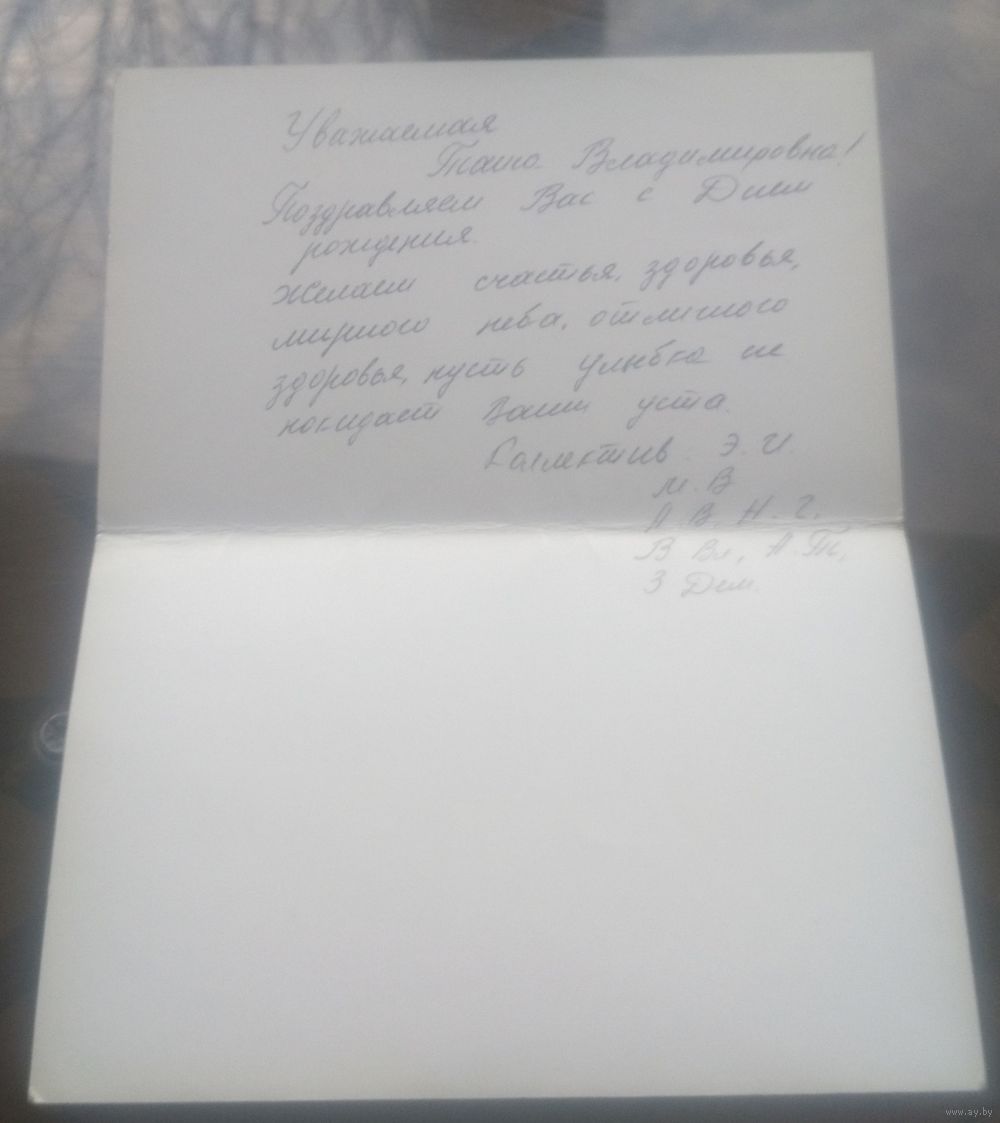 Уважаемая
Владимировна!
Поздравляем Вас с Днем
рождения.
Желаем счастья, здоровья,
мирного неба, отличного
здоровья, пусть улыбка не
покидает Ваши уста.
Коллектив Э. И.
М. В
В. Н. Г.
В Вл, А. Т,
З Дем.
www.ay.by